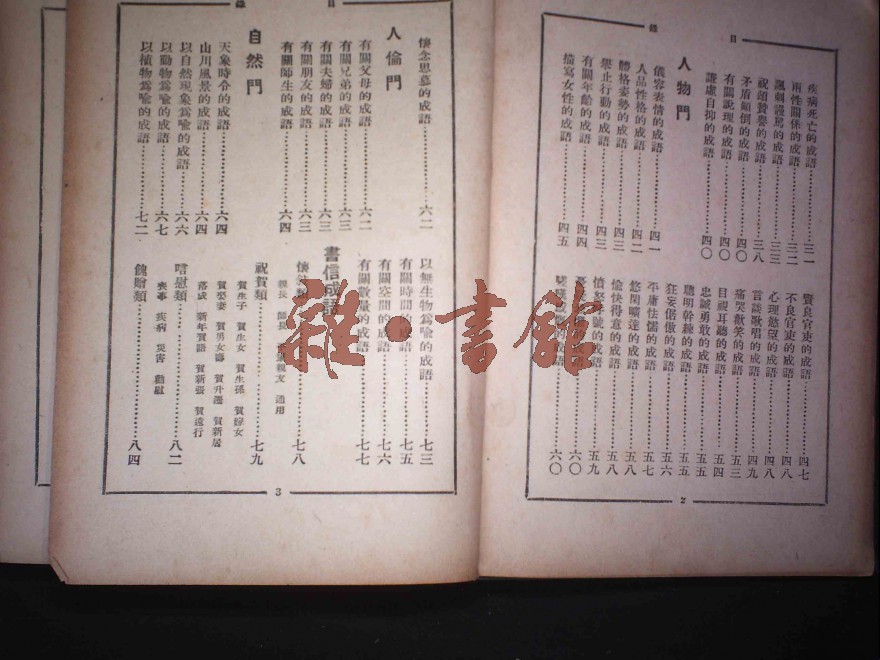 目
錄
疾病死亡的成語……三一
兩性關係的成語……三二
諷刺謾罵的成語……三三
祝頌贊譽的成語……三八
矛盾顛倒的成語……四〇
有關說理的成語……四〇
謙虛自抑的成語……四〇
人物門
儀容表情的成語……四一
人品性格的成語……四二
體格姿勢的成語……四三
舉止行動的成語……四三
有關年齡的成語……四四
描寫女性的成語……四五
賢良官吏的成語……四七
不良官吏的成語……四八
心理慾望的成語……四八
言談歌唱的成語……四九
痛哭歡笑的成語……五三
目視耳聽的成語……五四
忠誠勇敢的成語……五五
聰明幹練的成語……五五
狂妄倨傲的成語……五六
平庸怯懦的成語……五七
悠閒曠達的成語……五八
愉快得意的成語……五八
憤怒號的成語……五九
六〇
六〇
2
目
錄
懷念思慕的成語……六二
人倫門
有關父母的成語……六二
有關兄弟的成語……六三
有關夫婦的成語……六三
有關朋友的成語……六三
有關師生的成語……六四
自然門
天象時令的成語……六四
山川風景的成語……六四
以自然現象爲喻的成語……六六
以動物爲喻的成語……六七
以植物爲喻的成語……七二
以無生物爲喻的成語……七三
有關時間的成語……七五
有關空間的成語……七六
有關數量的成語……七七
書信成語
懷……七八
親長 師長 親友 通用
祝賀類……七九
賀生子 賀生女 賀生孫 賀嫁女
賀娶妻 賀男女壽 賀升遷 賀新居
落成 新年賀語 賀新張 賀遠行
唁慰類……八二
喪事 疾病 災害 勸慰
餽贈類……八四
3
雜·書館